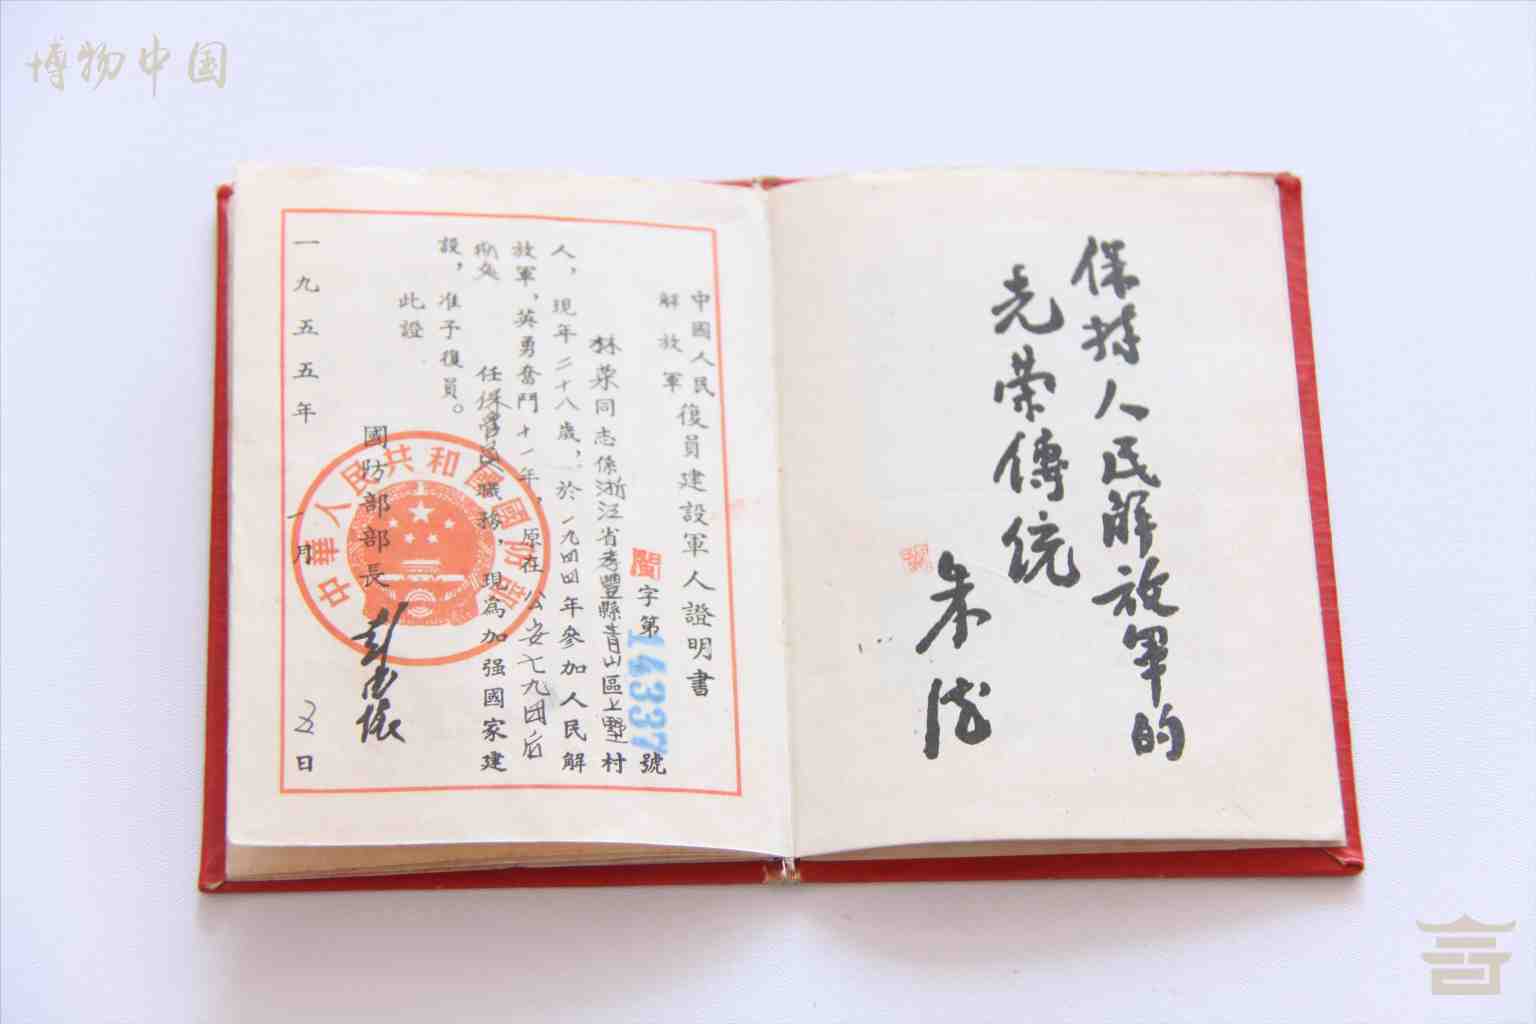 博物中国
保持人民解放軍的
光荣傳统
朱德
中國人民
解放軍
復員建設軍人證明書
閩字第14337號
林荣同志係浙江省孝豐縣青山區上墅村
人，現年二十八歲，於一九四四年參加人民解
放軍，英勇奮鬥十一年，原在公安七九团后
勤处任保管员職務，現為加强國家建
設，准予復員。
此證
國防部部長
彭德懷
一九五五年一月五日
中華人民共和國國防部